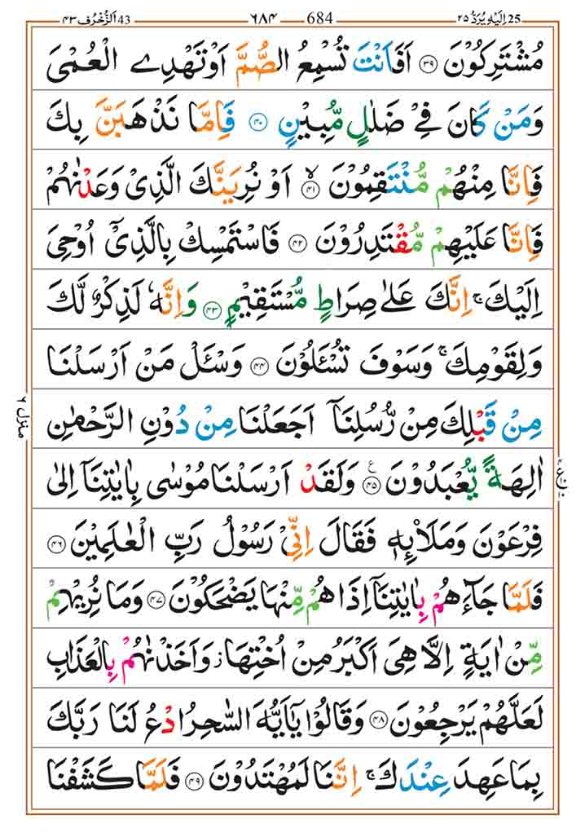 25 اِلَیْہِ یُرَدُّ ۲۵ ۶۸۴ 684 43 اَلزُّخْرُف ۴۳
مُشْتَرِكُوْنَ ۝۳۹ اَفَاَنْتَ تُسْمِعُ الصُّمَّ اَوْ تَهْدِی الْعُمْیَ
وَمَنْ كَانَ فِیْ ضَلٰلٍ مُّبِیْنٍ ۝۴۰ فَاِمَّا نَذْهَبَنَّ بِكَ
فَاِنَّا مِنْهُمْ مُّنْتَقِمُوْنَ ۝۴۱ۙ اَوْ نُرِیَنَّكَ الَّذِیْ وَعَدْنٰهُمْ
فَاِنَّا عَلَیْهِمْ مُّقْتَدِرُوْنَ ۝۴۲ فَاسْتَمْسِكْ بِالَّذِیْۤ اُوْحِیَ
اِلَیْكَ ۚ اِنَّكَ عَلٰی صِرَاطٍ مُّسْتَقِیْمٍ ۝۴۳ وَاِنَّهٗ لَذِكْرٌ لَّكَ
وَلِقَوْمِكَ ۚ وَسَوْفَ تُسْـَٔلُوْنَ ۝۴۴ وَسْـَٔلْ مَنْ اَرْسَلْنَا
مِنْ قَبْلِكَ مِنْ رُّسُلِنَاۤ اَجَعَلْنَا مِنْ دُوْنِ الرَّحْمٰنِ
اٰلِهَةً یُّعْبَدُوْنَ ۝۴۵ۧ وَلَقَدْ اَرْسَلْنَا مُوْسٰی بِاٰیٰتِنَاۤ اِلٰی
فِرْعَوْنَ وَمَلَا۟ىِٕهٖ فَقَالَ اِنِّیْ رَسُوْلُ رَبِّ الْعٰلَمِیْنَ ۝۴۶
فَلَمَّا جَآءَهُمْ بِاٰیٰتِنَاۤ اِذَا هُمْ مِّنْهَا یَضْحَكُوْنَ ۝۴۷ وَمَا نُرِیْهِمْ
مِّنْ اٰیَةٍ اِلَّا هِیَ اَكْبَرُ مِنْ اُخْتِهَا ؗ وَاَخَذْنٰهُمْ بِالْعَذَابِ
لَعَلَّهُمْ یَرْجِعُوْنَ ۝۴۸ وَقَالُوْا یٰۤاَیُّهَ السّٰحِرُ ادْعُ لَنَا رَبَّكَ
بِمَا عَهِدَ عِنْدَكَ ۚ اِنَّنَا لَمُهْتَدُوْنَ ۝۴۹ فَلَمَّا كَشَفْنَا
منزل ۶